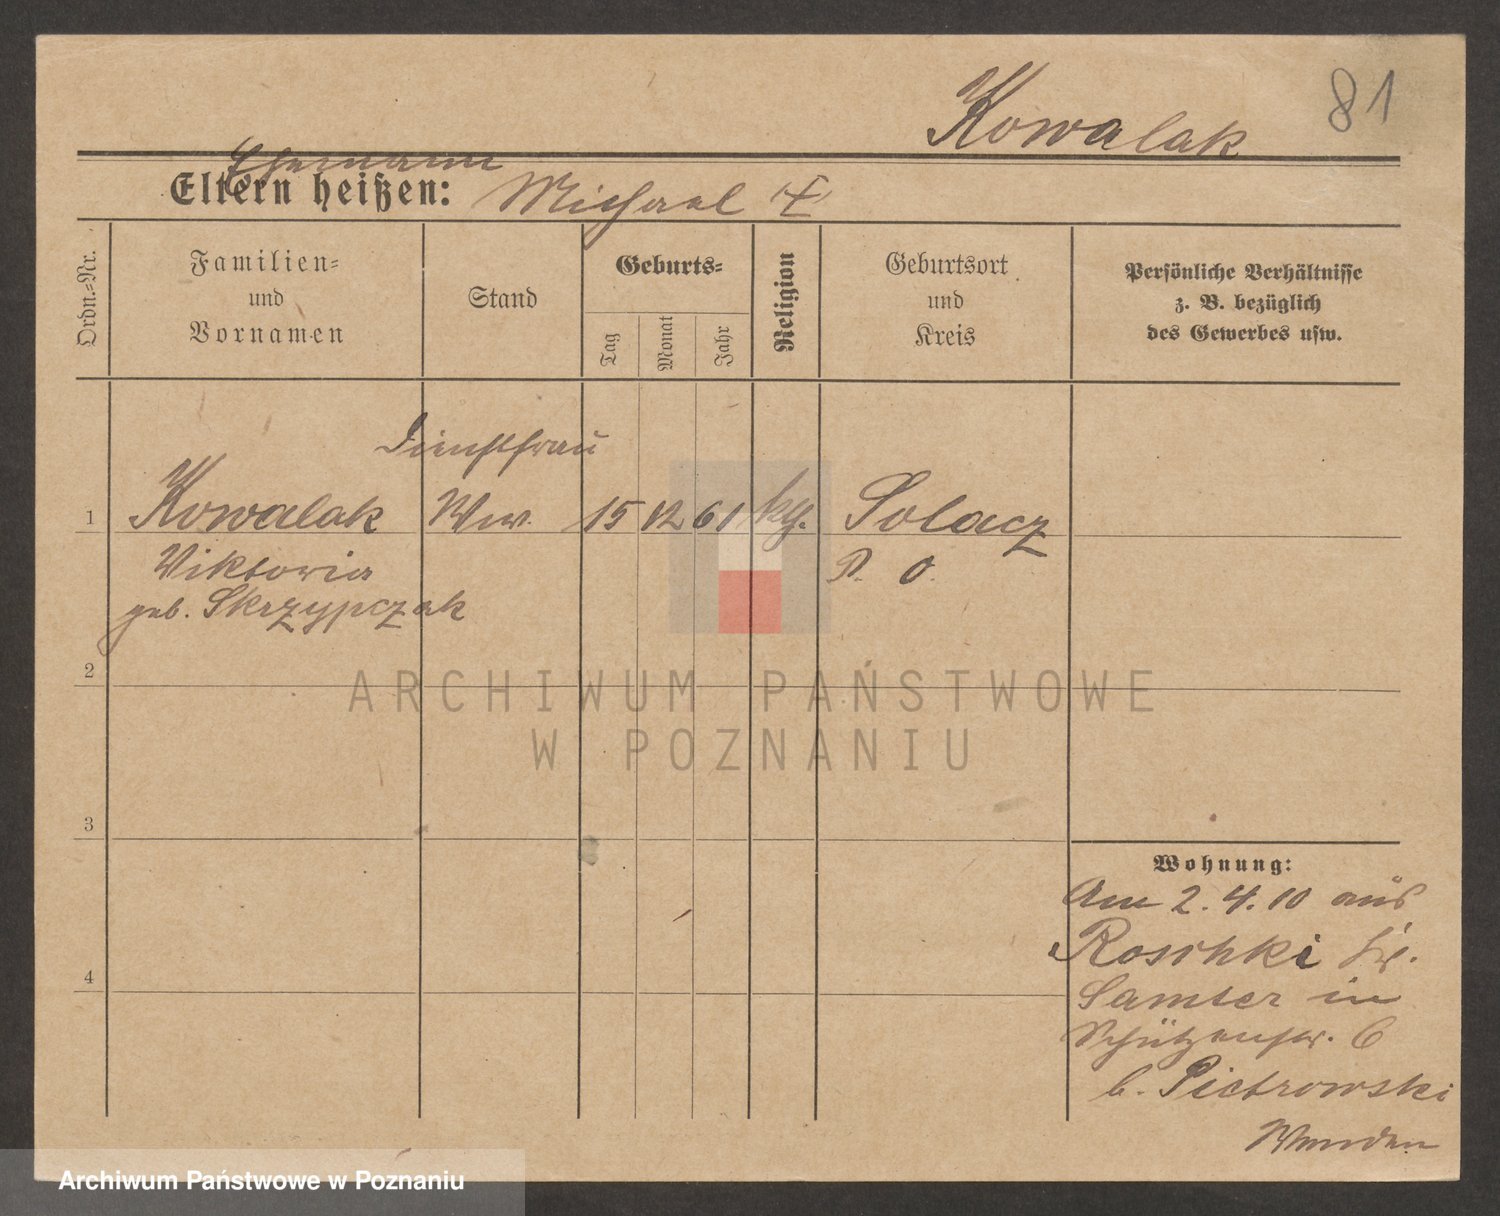 Kowalak
81
Ehemann
Eltern heißen: Michael †
Ordn.-Nr.
Familien-
und
Vornamen
Stand
Geburts-
Tag
Monat
Jahr
Religion
Geburtsort
und
Kreis
Persönliche Verhältnisse
z. B. bezüglich
des Gewerbes usw.
Dienstfrau
1 Kowalak Ww. 15 12 61 kg. Solacz
Viktoria P. O.
geb. Skrzypczak
2
3
4
Wohnung:
Am 2.4.10 aus
Roschki Kr.
Samter in
Schützenstr. 6
b. Pietrowski
ARCHIWUM PAŃSTWOWE
W POZNANIU
Archiwum Państwowe w Poznaniu